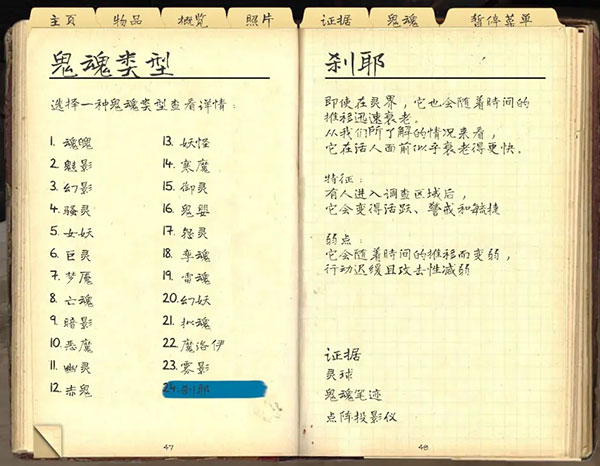 主页
物品
概览
照片
证据
鬼魂
暂停菜单
鬼魂类型
选择一种鬼魂类型查看详情:
1. 魂魄
2. 魅影
3. 幻影
4. 骚灵
5. 女妖
6. 巨灵
7. 梦魇
8. 亡魂
9. 暗影
10. 恶魔
11. 幽灵
12. 赤鬼
13. 妖怪
14. 寒魔
15. 御灵
16. 鬼婴
17. 怨灵
18. 孪魂
19. 雷魂
20. 幻妖
21. 拟魂
22. 魔洛伊
23. 雾影
24. 刹耶
47
刹耶
即使在灵界,它也会随着时间的
推移迅速衰老。
从我们所了解的情况来看,
它在活人面前似乎衰老得更快。
特征:
有人进入调查区域后,
它会变得活跃、警戒和敏捷
弱点:
它会随着时间的推移而变弱,
行动迟缓且攻击性减弱
证据
灵球
鬼魂笔迹
点阵投影仪
48